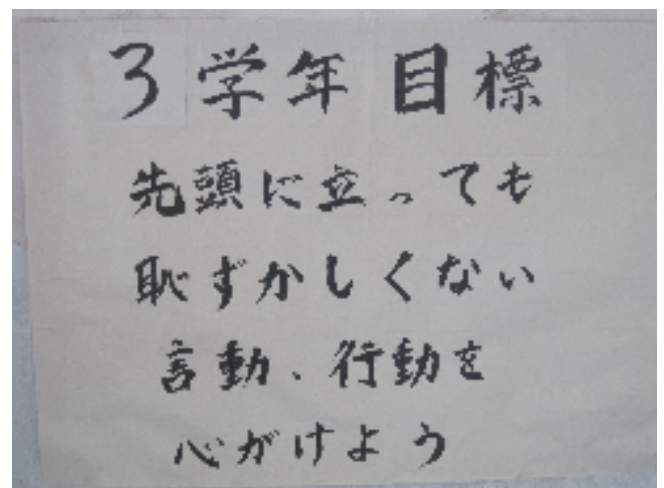 3学年目標
先頭に立っても
恥ずかしくない
言動、行動を
心がけよう